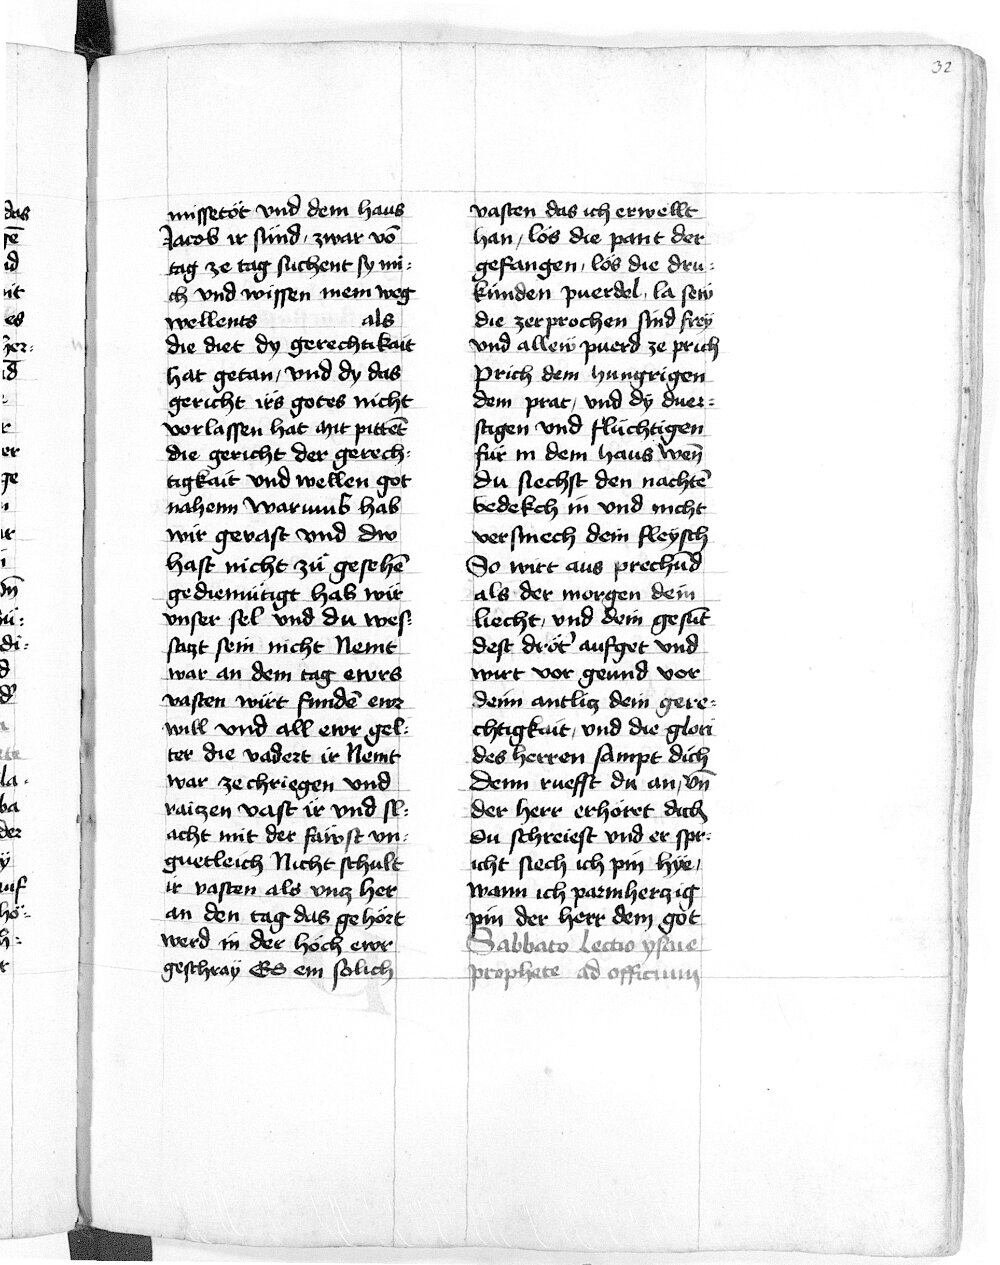 32
missetöt vnd dem haus
Jacob ir sünd, zwar vō
tag ze tag suchent sy mi:
ch vnd wissen mein weg
wellents als
die diet dy gerechtikait
hat getan, vnd dy das
gericht irs gotes nicht
vorlassen hat mit pittēt
die gericht der gerech:
tigkait vnd wellen got
nahenn Warumb hab
wir gevast vnd dw
hast nicht zů gesehē
gediemütigt hab wir
vnser sel vnd du wes:
sagt sein nicht Nemt
war an dem tag ewrs
vasten wirt fundē ewr
will vnd all ewr gel:
ter die vadert ir Nemt
war ze chriegen vnd
raitzen vast ir vnd sl:
acht mit der fawst vn:
guetleich Nicht schult
ir vasten als vntz her
an den tag das gehört
werd in der höch ewr
geschray Es ein solich
vasten das ich erwellt
han, lös die pant der
gefangen, lös die dru:
kunden puerdel, la seiñ
die zerprochen sind frey
vnd allew puerd ze prich
Prich dem hungrigen
dem prat, vnd dy duer:
stigen vnd flüchtigen
für in dem haus Weñ
du siechst den nachtē
bedekch in vnd nicht
versmech dein fleysch
So wirt aus prechūd
als der morgen dein
liecht, vnd dein gesūt
dest dröt' aufget vnd
wirt vor geund vor
deim antlitz dein gere:
chtigkait, vnd die glori
des herren sampt dich
Denn ruefft du an, vñ
der herr erhöret dich
du schreiest vnd er spr:
icht siech ich pin hye,
wann ich parmhertzig
pin der herr dem got
Sabbato Lectio ysaie
prophete ad officium